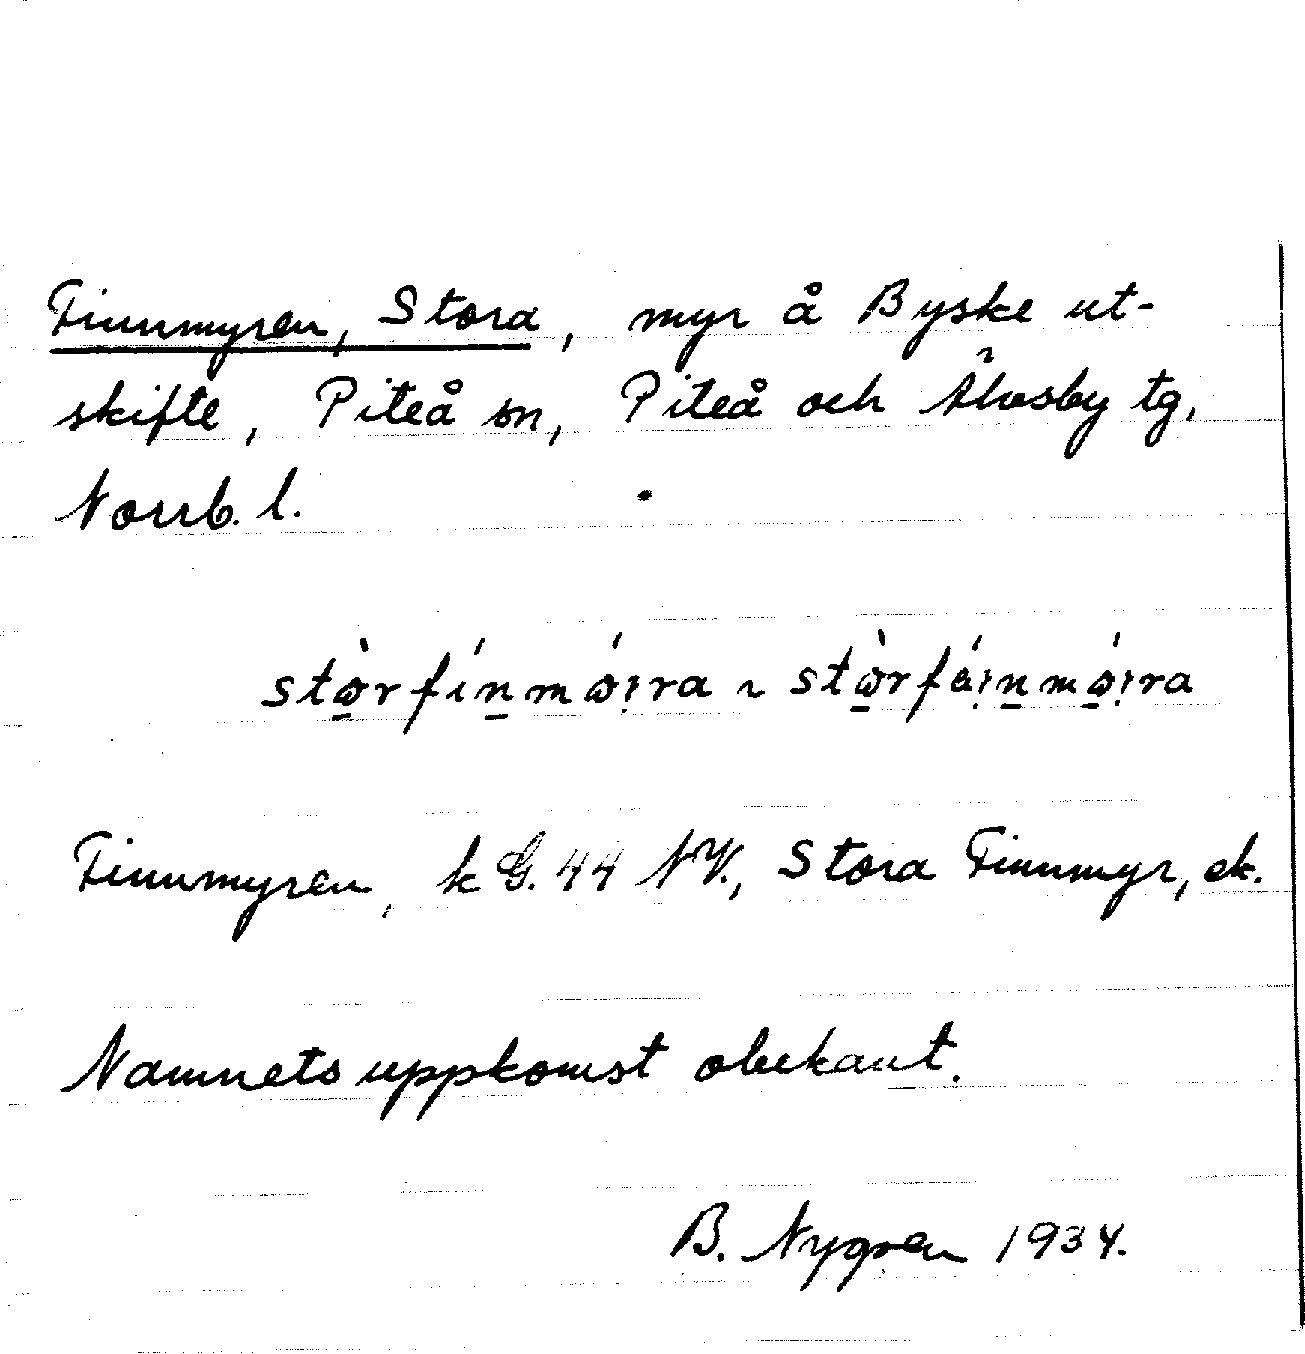 Finnmyren, Stora, myr å Byske ut-
skifte, Piteå sn, Piteå och Älvsby tg,
Norrb. l.
stɷ̠̀rfín̠mɷ́ı̣ra ~ stɷ̠̀rfáı̣n̠mɷ̠́ı̣ra
Finnmyren, k G. 44 NV., Stora Finnmyr, ek.
Namnets uppkomst obekant.
B. Nygren 1934.